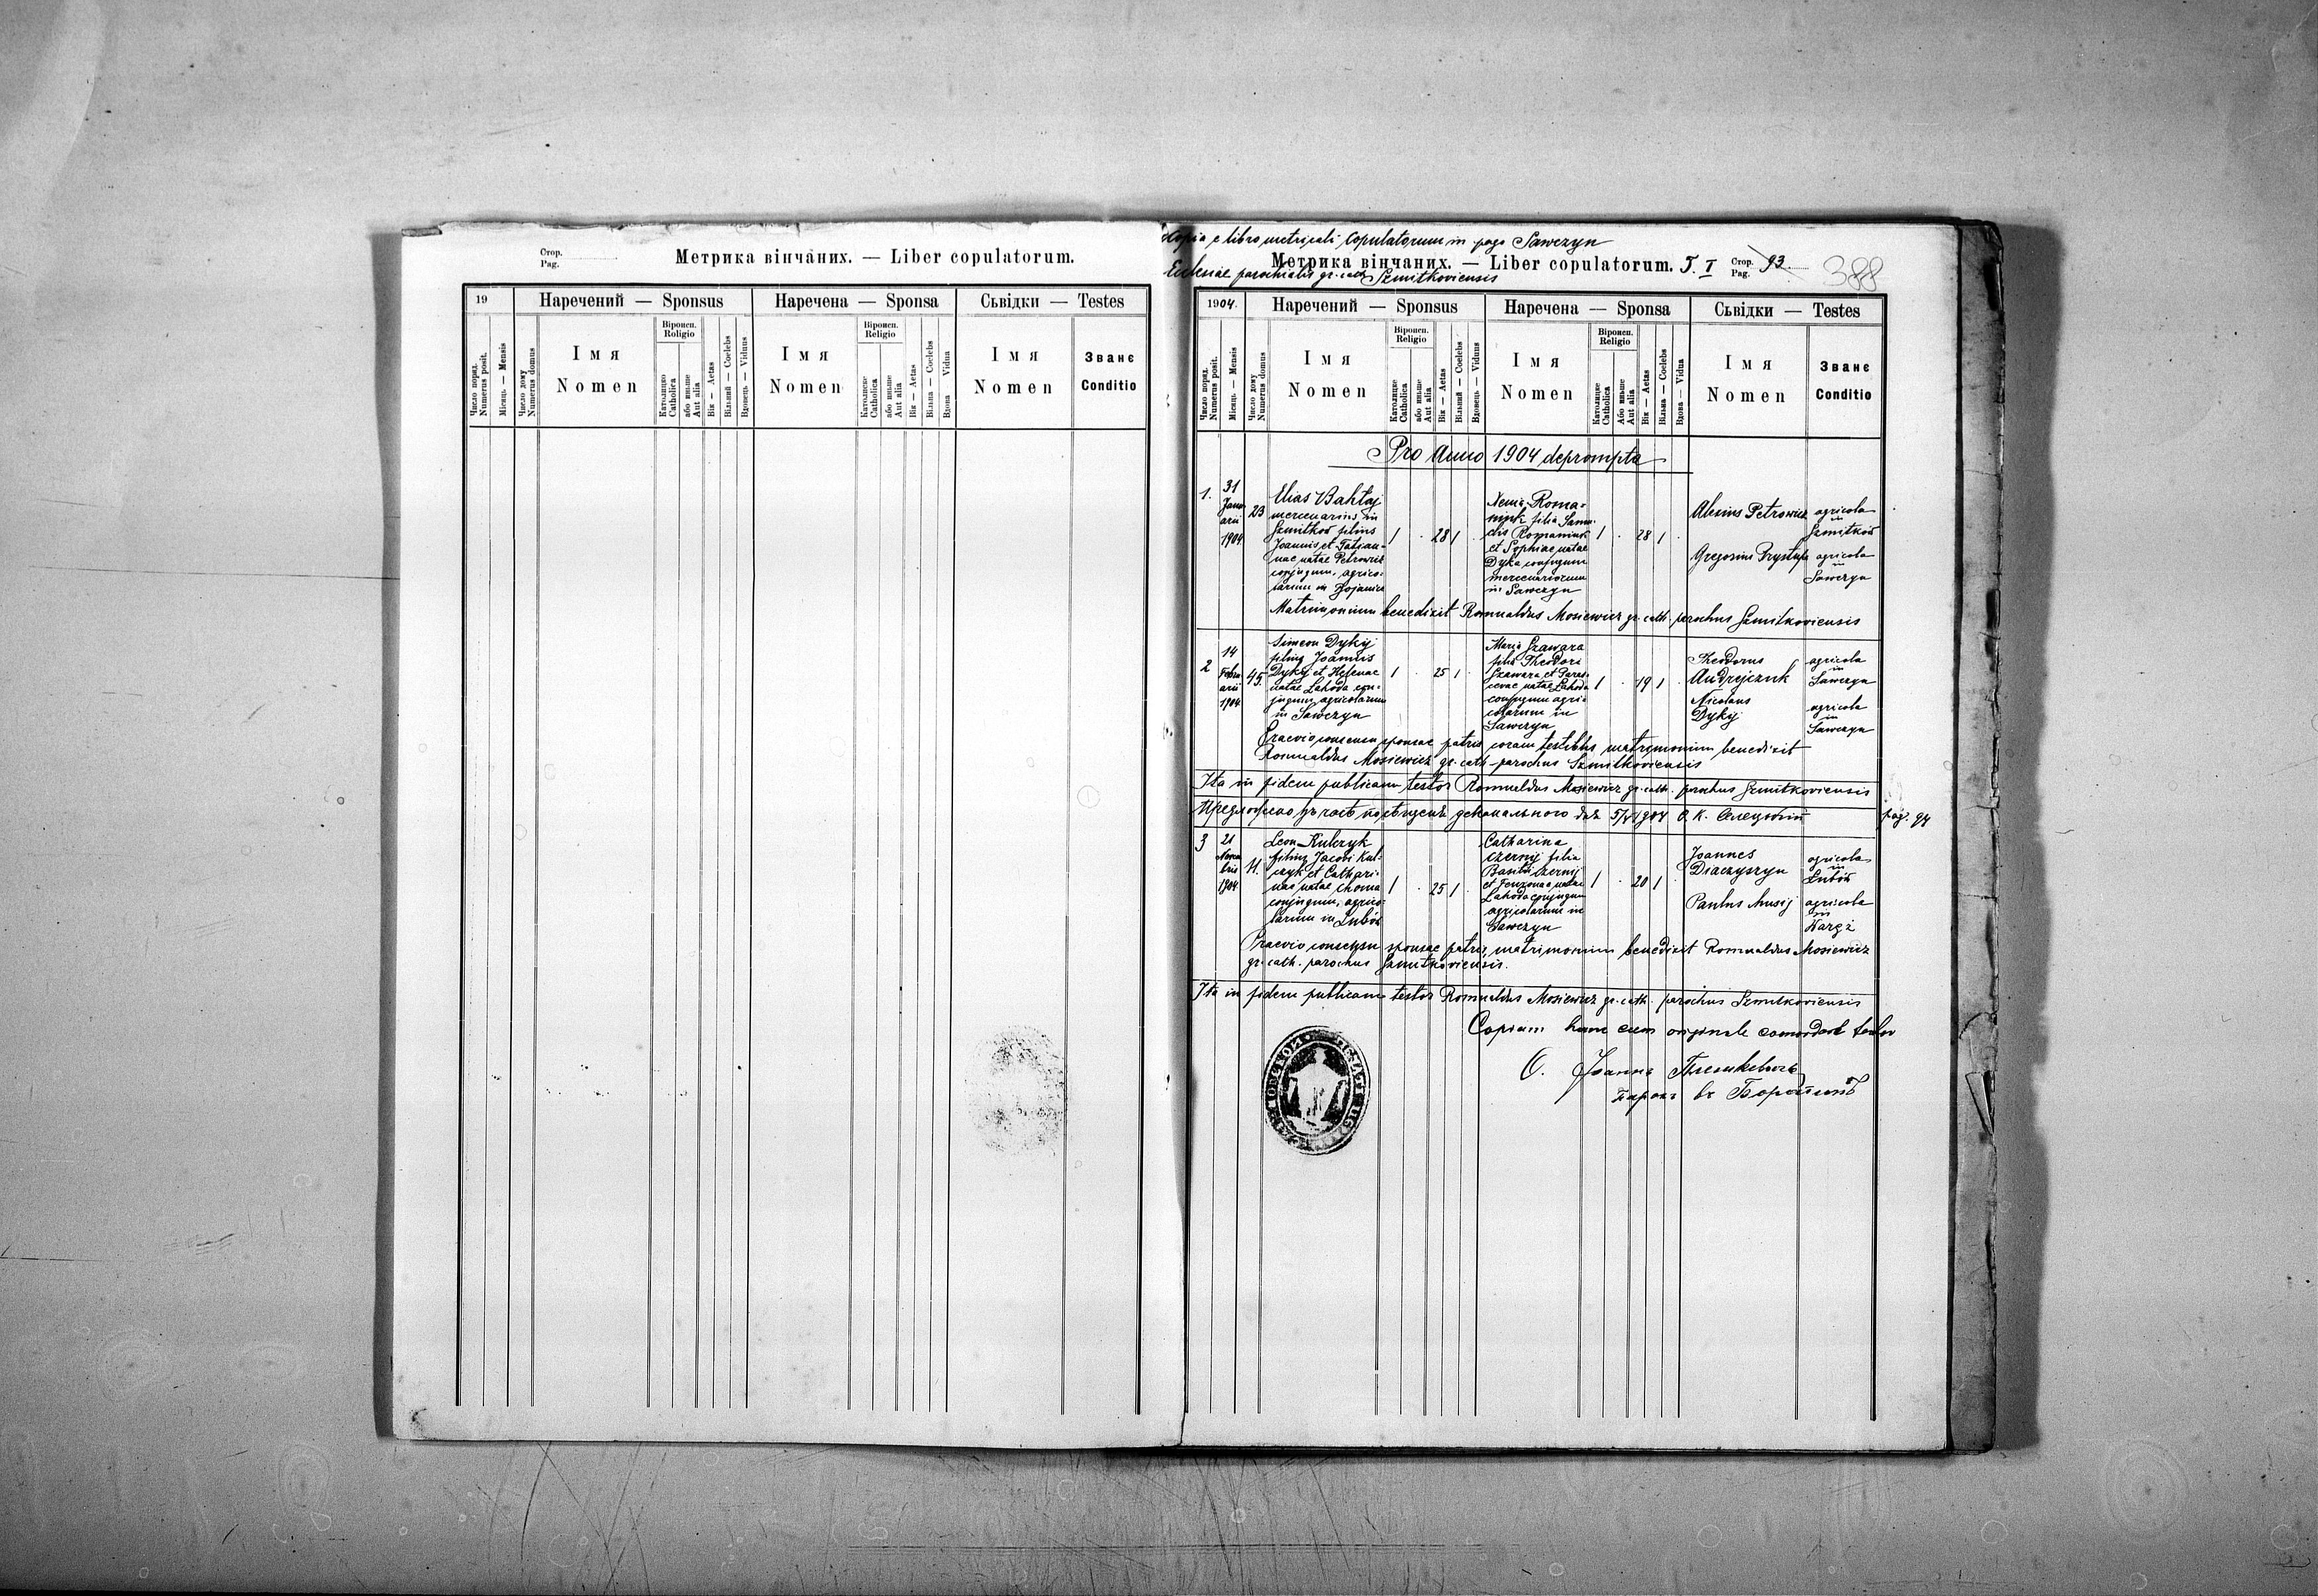 Стор.
Pag.
Метрика вінчаних. — Liber copulatorum.
19
Наречений — Sponsus
Наречена — Sponsa
Сьвідки — Testes
Число поряд.
Numerus posit.
Місяць — Mensis
Число дому
Numerus domus
Імя
Nomen
Віроисп.
Religio
Католицке
Catholica
або иньше
Aut alia
Вік — Aetas
Вільний — Coelebs
Вдовець — Viduus
Імя
Nomen
Віроисп.
Religio
Католицке
Catholica
або иньше
Aut alia
Вік — Aetas
Вільна — Coelebs
Вдова — Vidua
Імя
Nomen
Званє
Conditio
Copia e libro metricali Copulatorum in pago Sawczyn
Метрика вінчаних. — Liber copulatorum. T. I Стор. Pag. 93
388
Eclesiae parochialis gr. cath. Szmitkoviensis
1904.
Наречений — Sponsus
Наречена — Sponsa
Сьвідки — Testes
Число поряд.
Numerus posit.
Місяць — Mensis
Число дому
Numerus domus
Імя
Nomen
Віроисп.
Religio
Католицке
Catholica
або иньше
Aut alia
Вік — Aetas
Вільний — Coelebs
Вдовець — Viduus
Імя
Nomen
Віроисп.
Religio
Католицке
Catholica
Або иньше
Aut alia
Вік — Aetas
Вільна — Coelebs
Вдова — Vidua
Імя
Nomen
Званє
Conditio
Pro Anno 1904 deprompta
1.
31
Janu
arii
1904
23
Elias Bahlaj
mercenarius in
Szmitków filius
Joannis et Tatian-
nae natae Petrowicz
conjugum, agrico-
larum in Bojanice
1 . 28 1 .
Roma-
niuk filia Samu-
elis Romaniuk
et Sophiae natae
Dyka conjugum
mercenariorum
in Sawczyn
1 . 28 1 .
Alexius Petrowicz
agricola
in
Szmitków
Gregorius Prystupa
agricola
in
Sawczyn
Matrimonium benedixit Romualdus Mosiewicz gr. cath. parochus Szmitkoviensis
2
14
Febru
arii
1904
45.
Simeon Dykij
filius Joannis
Dykij et Helenae
natae Lahoda con-
jugum, agricolarum
in Sawczyn
1 . 25 1 .
Maria Szawara
filia Theodori
Szawara et Paras-
cevae natae Lahoda
conjugum agri-
colarum in
Sawczyn
1 . 19 1 .
Theodorus
Andrejczuk
agricola
in
Sawczyn
Nicolaus
Dykij
agricola
in
Sawczyn
Praevio consensu sponsae patris coram testibus matrimonium benedixit
Romualdus Mosiewicz gr. cath. parochus Szmitkoviensis
Ita in fidem publicam testor Romualdus Mosiewicz gr. cath. parochus Szmitkoviensis
1904 О. К.
pag. 94
3
21
Novem
bris
1904
11.
Leon Kulczyk
filius Jacobi Kul-
czyk et Cathari-
nae natae Choma
conjugum, agrico-
larum in Lubów
1 . 25 1 .
Catharina
Czernij filia
Czernij
et natae
Lahoda conjugum
agricolarum in
Sawczyn
1 . 20 1 .
Joannes
Diaczyszyn
agricola
in
Lubów
Paulus Musij
agricola
in
Waręż
Praevio consensu sponsae patris, matrimonium benedixit Romualdus Mosiewicz
gr. cath. parochus Szmitkoviensis.
Ita in fidem publicam testor Romualdus Mosiewicz gr. cath. parochus Szmitkoviensis
Copiam hanc cum originale concordare testor
О.